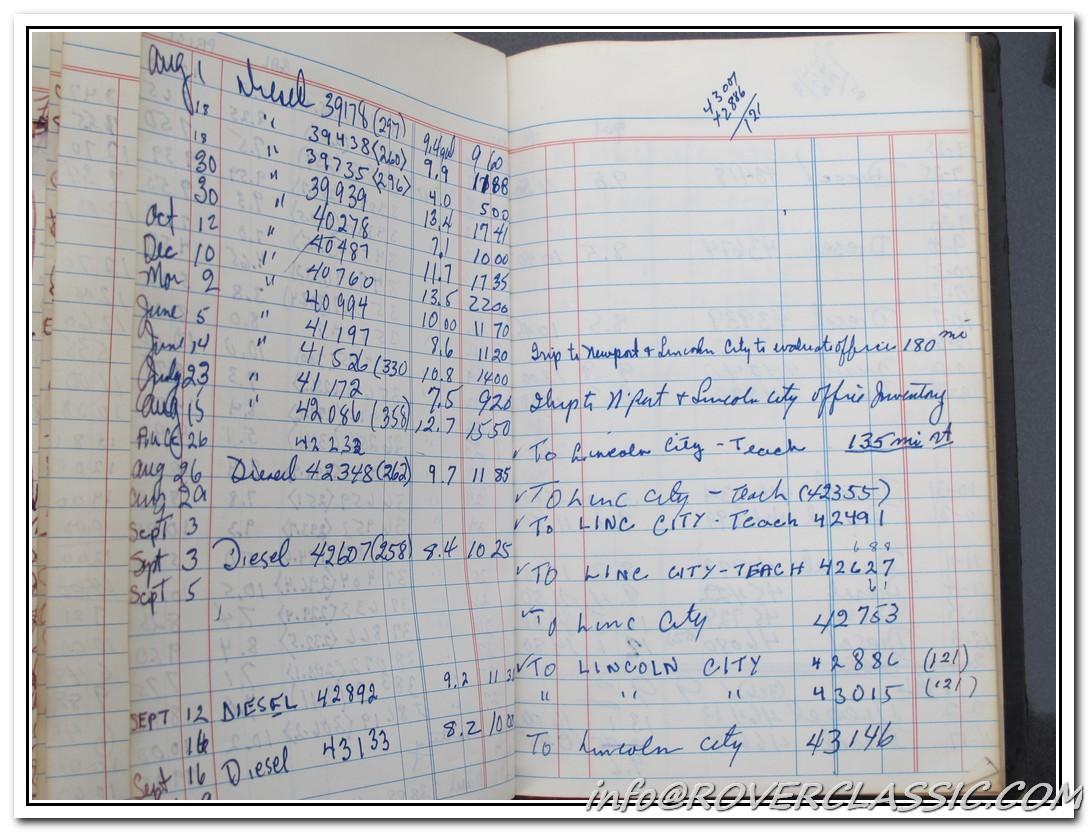 Aug 1 Diesel 39178 (297) 9.4 gal 9 60
18 " 39438 (260) 9.9 11 88
18 " 39735 (296) 4.0 5 00
30 " 39939 13.4 17 41
30 " 40278 7.1 10 00
Oct 12 " 40487 11.7 17 35
Dec 10 " 40760 13.5 22 06
Mar 2 " 40994 10 00 11 70
June 5 " 41197 8.6 11 20
June 14 " 41526 (330 10.8 14 00
July 23 " 41172 7.5 9 20
Aug 15 " 42086 (358) 12.7 15 50
AUG 26 42232
Aug 26 Diesel 42348 (262) 9.7 11 85
Aug 29
Sept 3
Sept 3 Diesel 42607 (258) 8.4 10 25
Sept 5
SEPT 12 DIESEL 42892 9.2
16
Sept 16 Diesel 43133 8.2 10 00
43007
42886
121
Trip to Newport & Lincoln City to evaluate office 180 mi
to N'Port & Lincoln City office Inventory
✓ To Lincoln City - Teach 135 mi rt
✓ TO Linc City - Teach (42355)
✓ To LINC CITY - Teach 42491
✓ TO LINC CITY - TEACH 42627
✓ To Linc City 42753
✓ TO LINCOLN CITY 42886 (121)
" " " 43015 (121)
To Lincoln City 43146
info@ROVERCLASSIC.COM